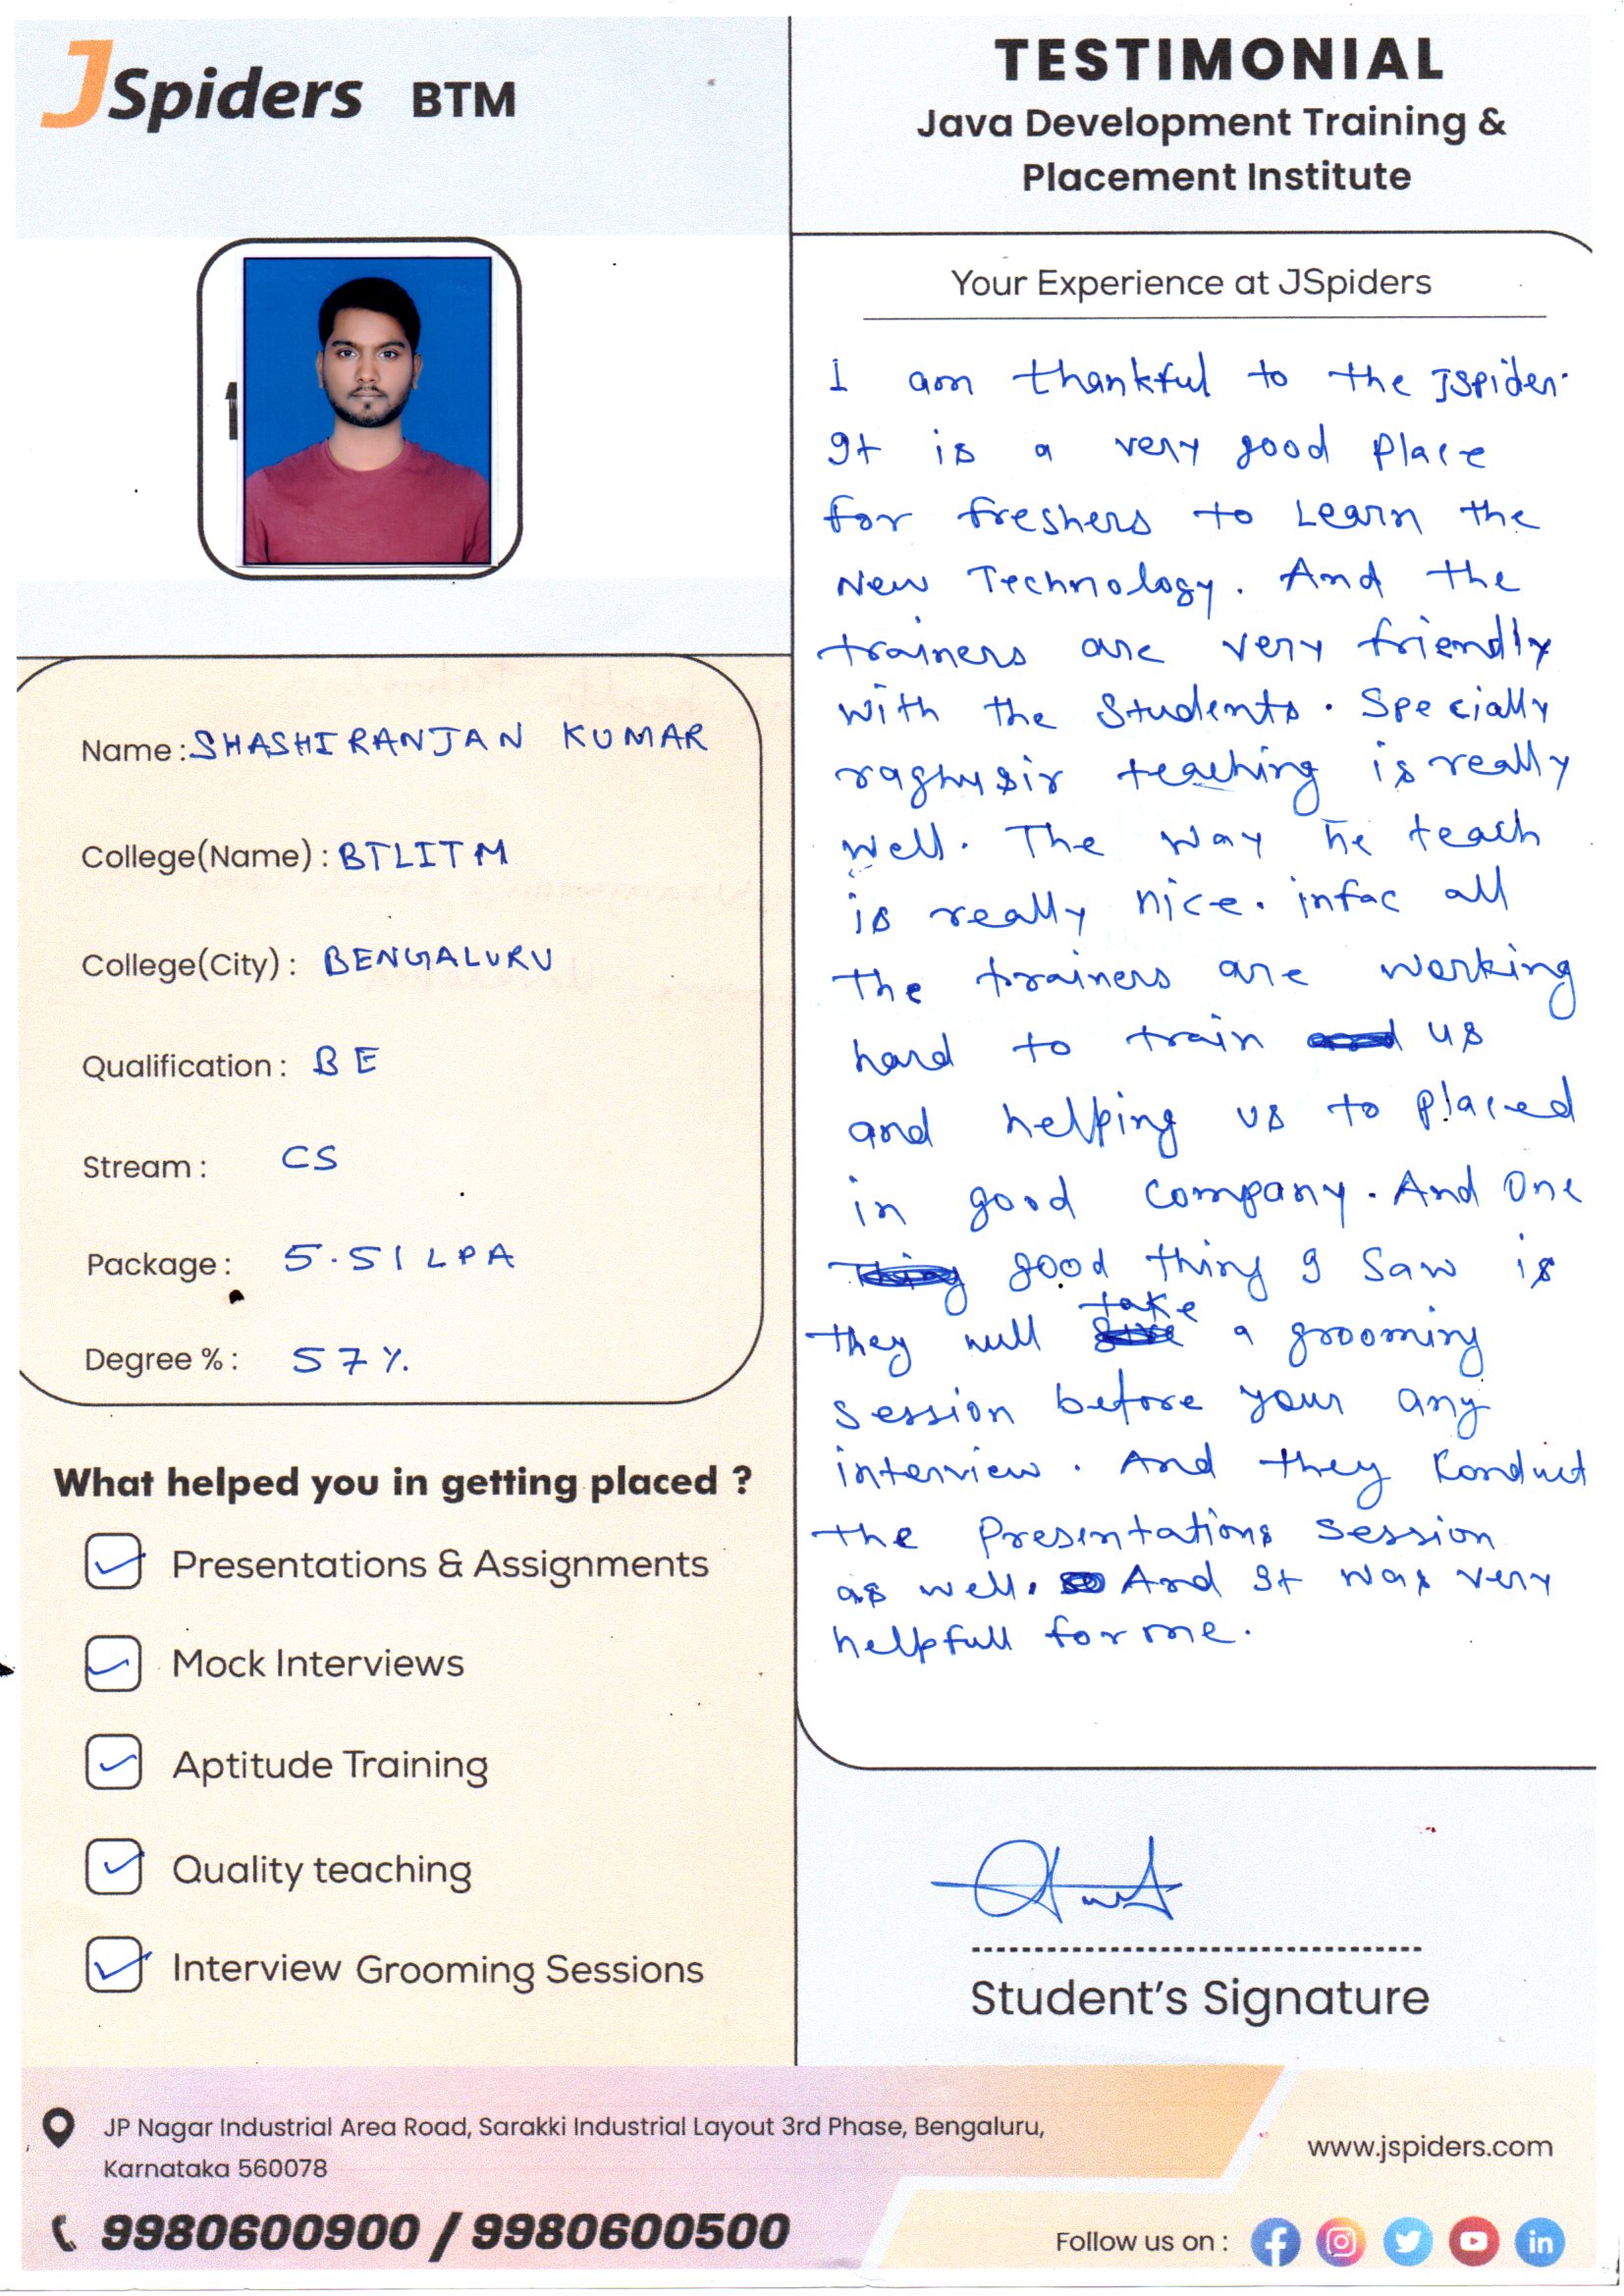 JSpiders BTM
TESTIMONIAL
Java Development Training &
Placement Institute
Name : SHASHI RANJAN KUMAR
College(Name) : BTLITM
College(City) : BENGALURU
Qualification : BE
Stream : CS
Package : 5.51 LPA
Degree % : 57%
What helped you in getting placed ?
Presentations & Assignments
Mock Interviews
Aptitude Training
Quality teaching
Interview Grooming Sessions
Your Experience at JSpiders
I am thankful to the Jspider.
It is a very good place
for freshers to Learn the
New Technology. And the
trainers are very friendly
with the Students. Specially
raghu sir teaching is really
well. The way he teach
is really nice. infac all
the trainers are working
hard to train us
and helping us to placed
in good company. And One
good thing I saw is
they will take a grooming
session before your any
interview. And they Konduct
the Presentations session
as well. And It was very
helpfull for me.
Student's Signature
JP Nagar Industrial Area Road, Sarakki Industrial Layout 3rd Phase, Bengaluru,
Karnataka 560078
9980600900 / 9980600500
www.jspiders.com
Follow us on :